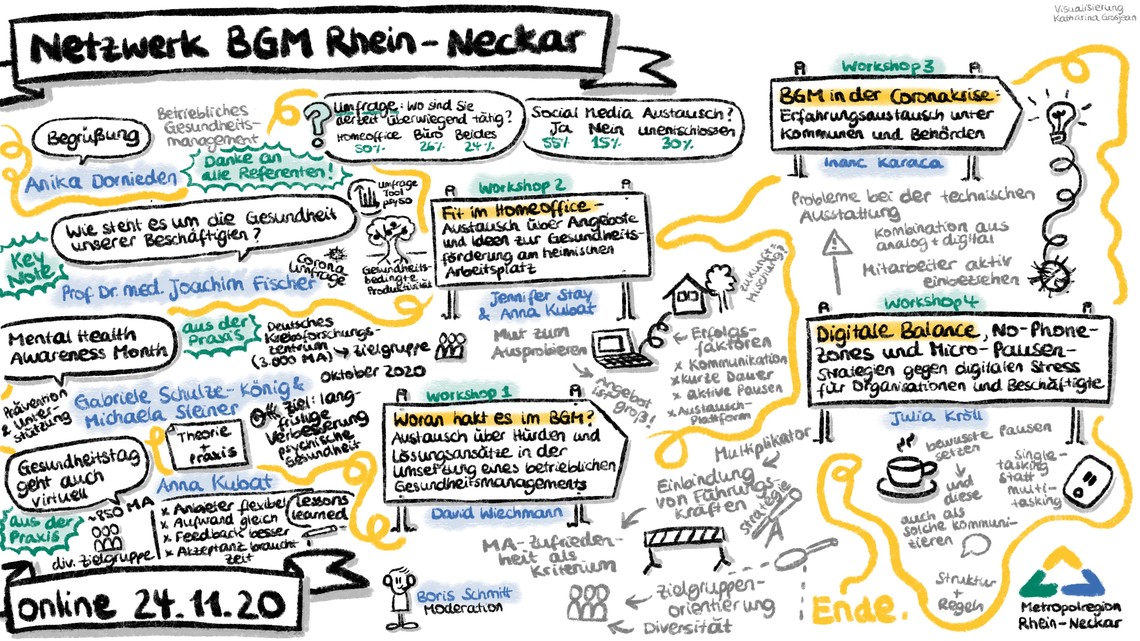 Visualisierung
Katharina Grosjean
Netzwerk BGM Rhein-Neckar
Begrüßung
Betriebliches
Gesundheits-
management
Anika Dornieden
Danke an
alle Referenten!
?
Umfrage: Wo sind Sie
derzeit überwiegend tätig?
Homeoffice Büro Beides
50% 26% 24%
Social Media Austausch?
Ja Nein unentschlossen
55% 15% 30%
Key
Note
Wie steht es um die Gesundheit
unserer Beschäftigten?
Prof. Dr. med. Joachim Fischer
Corona
Umfrage
Umfrage
Tool
Gesundheits-
bedingte
Produktivität
Mental Health
Awareness Month
aus der
Praxis
Deutsches
Krebsforschungs-
zentrum
(3.000 MA) → Zielgruppe
Oktober 2020
Prävention
& Unter-
stützung
Gabriele Schulze-König &
Michaela Steiner
Ziel: lang-
fristige
Verbesserung
psychische
Gesundheit
Gesundheitstag
geht auch
virtuell
Theorie
Praxis
Anna Kubat
aus der
Praxis
~850 MA
div. Zielgruppe
x Anbieter flexibel
x Aufwand gleich
x Feedback besser
x Akzeptanz braucht
Zeit
lessons
learned
online 24.11.20
Workshop 2
Fit im Homeoffice-
Austausch über Angebote
und Ideen zur Gesundheits-
förderung am heimischen
Arbeitsplatz
Jennifer Stay
& Anna Kubat
Mut zum
Ausprobieren
Angebot
ist groß!
Erfolgs-
faktoren
x Kommunikation
x kurze Dauer
x aktive Pausen
x Austausch-
Plattform
Workshop 1
Woran hakt es im BGM?
Austausch über Hürden und
Lösungsansätze in der
Umsetzung eines betrieblichen
Gesundheitsmanagements
David Wiechmann
Multiplikator
Einbindung
von Führungs-
kräften
Strategie
MA-Zufrieden-
heit als
Kriterium
Zielgruppen-
orientierung
Diversität
Boris Schmitt
Moderation
Workshop 3
BGM in der Coronakrise:
Erfahrungsaustausch unter
Kommunen und Behörden
Inanc Karaca
Probleme bei der technischen
Ausstattung
Kombination aus
analog + digital
Mitarbeiter aktiv
einbeziehen
Workshop 4
Digitale Balance, No-Phone-
Zones und Micro-Pausen-
Strategien gegen digitalen Stress
für Organisationen und Beschäftigte
Julia Kröll
bewusste Pausen
setzen
und
diese
auch als
solche kommuni-
zieren
Single-
tasking
statt
multi-
tasking
Struktur
+
Regeln
Ende.
Metropolregion
Rhein-Neckar